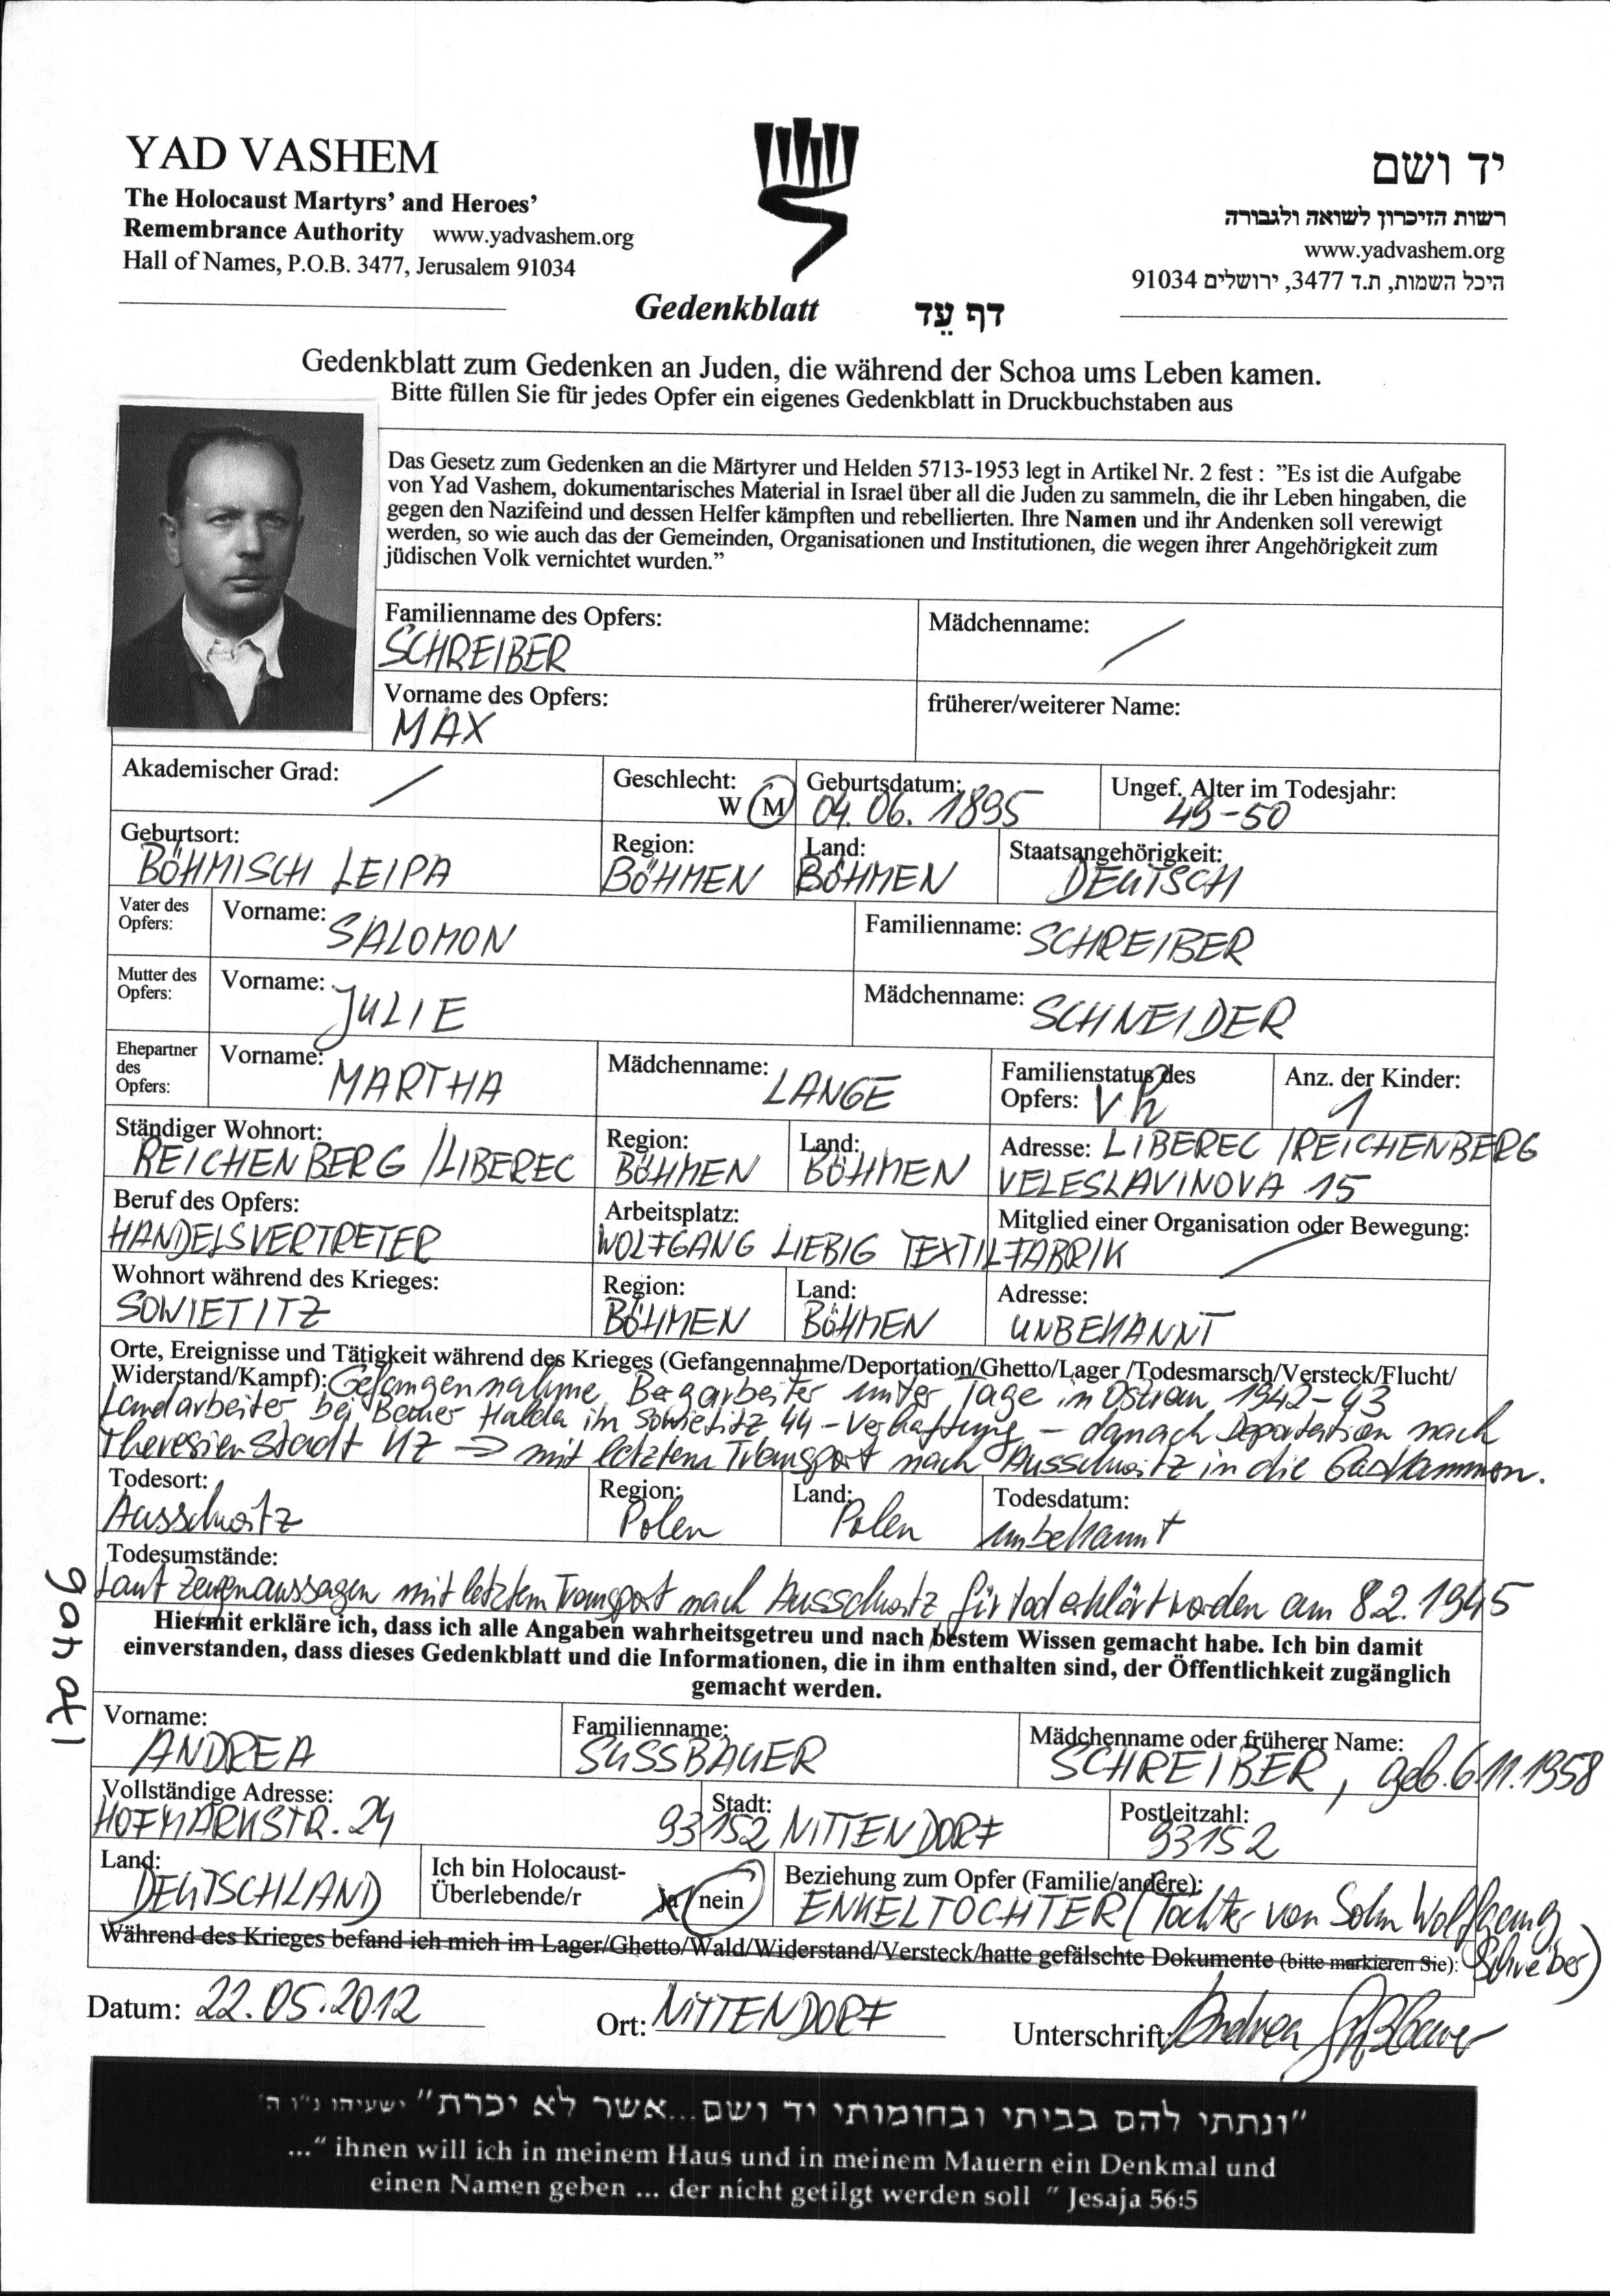 YAD VASHEM
The Holocaust Martyrs' and Heroes'
Remembrance Authority www.yadvashem.org
Hall of Names, P.O.B. 3477, Jerusalem 91034
יד ושם
רשות הזיכרון לשואה ולגבורה
www.yadvashem.org
היכל השמות, ת.ד 3477, ירושלים 91034
Gedenkblatt דף עֵד
Gedenkblatt zum Gedenken an Juden, die während der Schoa ums Leben kamen.
Bitte füllen Sie für jedes Opfer ein eigenes Gedenkblatt in Druckbuchstaben aus
Das Gesetz zum Gedenken an die Märtyrer und Helden 5713-1953 legt in Artikel Nr. 2 fest : "Es ist die Aufgabe
von Yad Vashem, dokumentarisches Material in Israel über all die Juden zu sammeln, die ihr Leben hingaben, die
gegen den Nazifeind und dessen Helfer kämpften und rebellierten. Ihre Namen und ihr Andenken soll verewigt
werden, so wie auch das der Gemeinden, Organisationen und Institutionen, die wegen ihrer Angehörigkeit zum
jüdischen Volk vernichtet wurden."
Familienname des Opfers: Mädchenname: /
SCHREIBER
Vorname des Opfers: früherer/weiterer Name:
MAX
Akademischer Grad: / Geschlecht: Geburtsdatum: Ungef. Alter im Todesjahr:
W M 04.06.1895 49-50
Geburtsort: Region: Land: Staatsangehörigkeit:
BÖHMISCH LEIPA BÖHMEN BÖHMEN DEUTSCH
Vater des Opfers: Vorname: SALOMON Familienname: SCHREIBER
Mutter des Opfers: Vorname: JULIE Mädchenname: SCHNEIDER
Ehepartner des Opfers: Vorname: MARTHA Mädchenname: LANGE Familienstatus des Opfers: Vh Anz. der Kinder: 1
Ständiger Wohnort: Region: Land: Adresse: LIBEREC /REICHENBERG
REICHENBERG /LIBEREC BÖHMEN BÖHMEN VELESLAVINOVA 15
Beruf des Opfers: Arbeitsplatz: Mitglied einer Organisation oder Bewegung: /
HANDELSVERTRETER WOLFGANG LIEBIG TEXTILFABRIK
Wohnort während des Krieges: Region: Land: Adresse:
SOWIETITZ BÖHMEN BÖHMEN UNBEKANNT
Orte, Ereignisse und Tätigkeit während des Krieges (Gefangennahme/Deportation/Ghetto/Lager /Todesmarsch/Versteck/Flucht/
Widerstand/Kampf): Gefangennahme Bergarbeiter unter Tage in Ostrau 1942-43
Landarbeiter bei Bauer Halda in Sowietitz 44 - Verhaftung - danach Deportation nach
Theresienstadt KZ → mit letztem Transport nach Ausschwitz in die Gaskammern.
Todesort: Region: Land: Todesdatum:
Ausschwitz Polen Polen unbekannt
Todesumstände:
Laut Zeugenaussagen mit letztem Transport nach Ausschwitz für tod erklärt worden am 8.2.1945
Hiermit erkläre ich, dass ich alle Angaben wahrheitsgetreu und nach bestem Wissen gemacht habe. Ich bin damit
einverstanden, dass dieses Gedenkblatt und die Informationen, die in ihm enthalten sind, der Öffentlichkeit zugänglich
gemacht werden.
Vorname: Familienname: Mädchenname oder früherer Name:
ANDREA SÜSSBAUER SCHREIBER, geb. 6.11.1958
Vollständige Adresse: Stadt: Postleitzahl:
HOFMARKSTR. 24 93152 NITTENDORF 93152
Land: Ich bin Holocaust- Beziehung zum Opfer (Familie/andere):
DEUTSCHLAND Überlebende/r ja / nein ENKELTOCHTER (Tochter von Sohn Wolfgang
Schreiber)
Während des Krieges befand ich mich im Lager/Ghetto/Wald/Widerstand/Versteck/hatte gefälschte Dokumente (bitte markieren Sie):
Datum: 22.05.2012 Ort: NITTENDORF Unterschrift: Andrea Süßbauer
"ונתתי להם בביתי ובחומותי יד ושם...אשר לא יכרת" ישעיהו נ"ו ה'
..." ihnen will ich in meinem Haus und in meinem Mauern ein Denkmal und
einen Namen geben ... der nicht getilgt werden soll " Jesaja 56:5